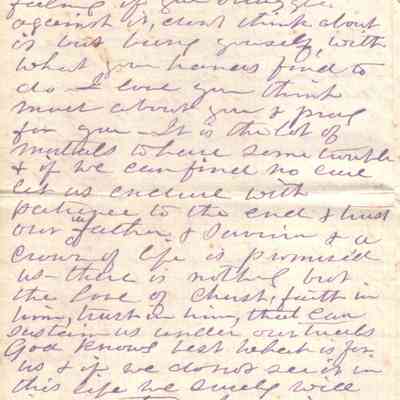 feeling if you struggle
against it, don't think about
it but busy yourself, with
what your hands find to
do - I love you think
much about you & pray
for you - It is the lot of
mortals to have some trouble
& if we can find no cure
let us endure with
patience to the end & trust
in our Father & Savior & a
crown of life is promised
us - there is nothing but
the love of Christ, faith in
him, trust in him, that can
sustain us under our trials
God knows best what is for
us & if we do not see it in
this life we surely will